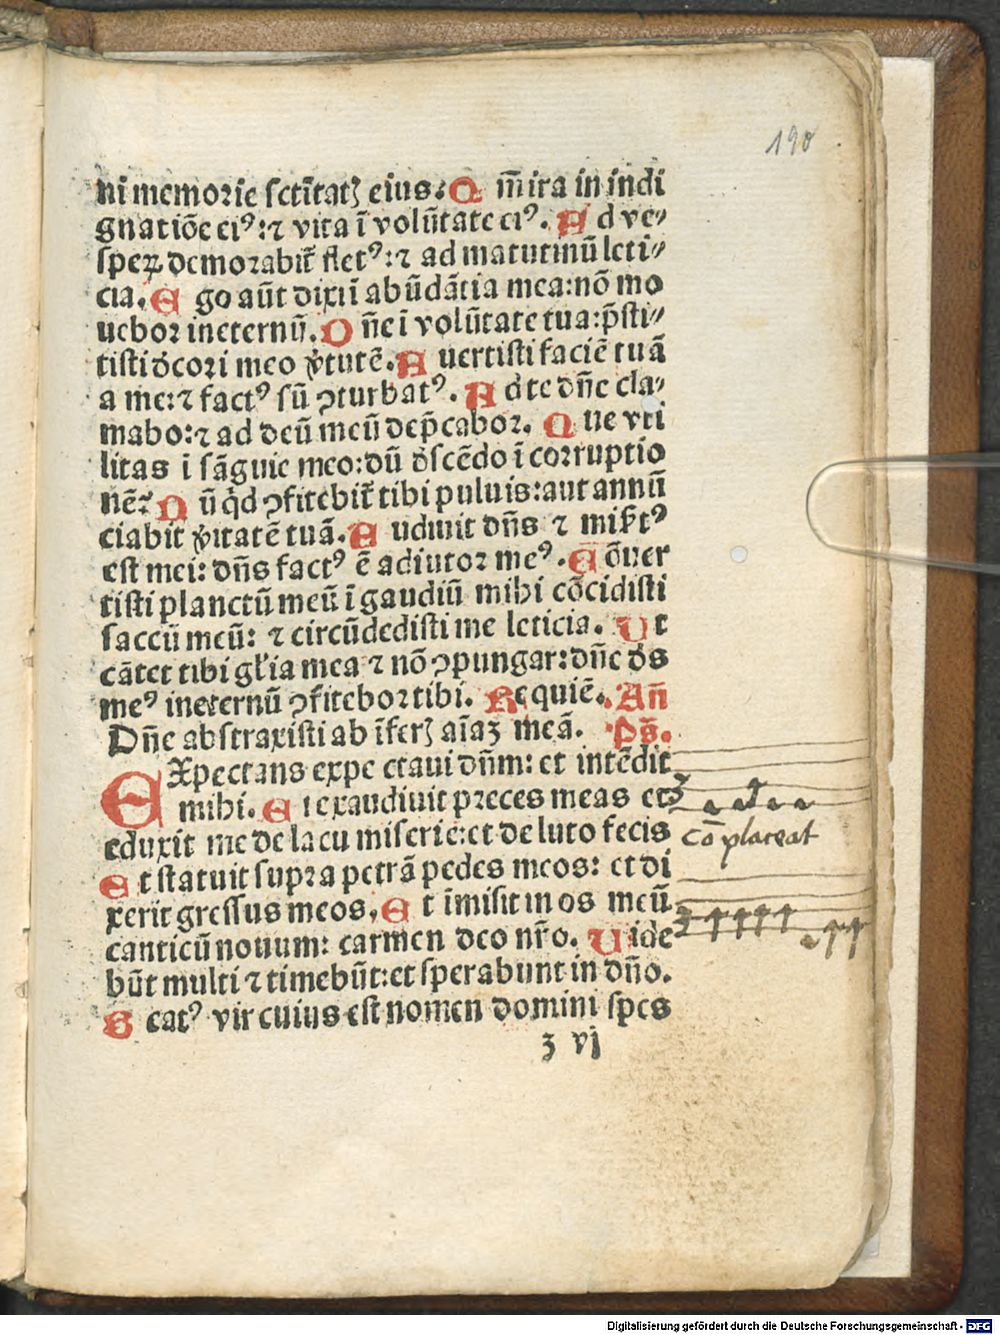 190
ni memorie sctītatꝫ eius: Q m̄ ira in indi
gnatiōe eiꝰ: ⁊ vita ī volūtate eiꝰ. A d ve⸗
speꝝ demorabit̄ fletꝰ: ⁊ ad matutinū leti⸗
cia. E go aūt dixi ī abūdātia mea: nō mo
uebor ineternū. D n̄e ī volūtate tua: p̄sti⸗
tisti dcori meo v̓tutē. A uertisti faciē tuā
a me: ⁊ factꝰ sū ꝯturbatꝰ. A d te dn̄e cla⸗
mabo: ⁊ ad deū meū dep̄cabor. Q ue vti
litas ī sāguie meo: dū dscēdo ī corruptio
nē? N ū qd ꝯfitebit̄ tibi puluis: aut annū
ciabit v̓itatē tuā. A udiuit dn̄s ⁊ mis̄tꝰ
est mei: dn̄s factꝰ ē adiutor meꝰ. C ōuer
tisti planctū meū ī gaudiū mihi cōcidisti
saccū meū: ⁊ circūdedisti me leticia. U t
cātet tibi gl̓ia mea ⁊ nō ꝯpungar: dn̄e ds
meꝰ ineternū ꝯfitebor tibi. R equiē. An̄
Dn̄e abstraxisti ab īferꝫ aīaꝫ meā. Ps̄.
E Xpectans expe ctaui dn̄m: et intēdit
mihi. E t exaudiuit preces meas et
eduxit me de lacu miserie: et de luto fecis
E t statuit supra petrā pedes meos: et di
xerit gressus meos. E t īmisit in os meū
canticū nouum: carmen deo nr̄o. U ide
būt multi ⁊ timebūt: et sperabunt in dn̄o.
B eatꝰ vir cuius est nomen domini spes
ꝫ vj
cōplaceat
Digitalisierung gefördert durch die Deutsche Forschungsgemeinschaft - DFG